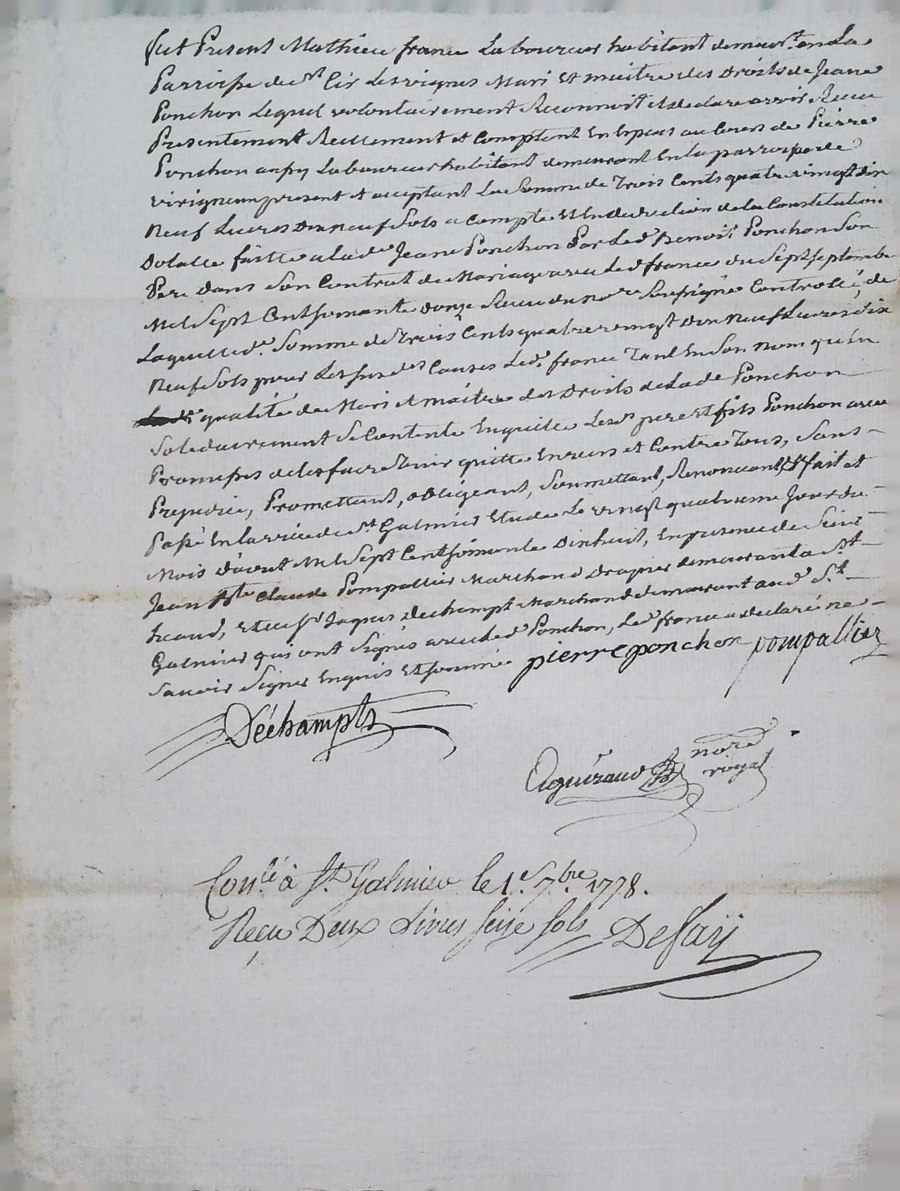 fut Present Mathieu france Laboureur habitant demeurt en La
Parroisse de St Cir Les vignes Mari Et maitre des Droits de Jeane
Ponchon Lequel volontairement Reconnoit et declare avoir Receu
Presentement Reellement et Comptent En Especes au Cours de Pierre
Ponchon Laboureur habitant demeurant En la parroisse de
virigneu present et acceptant La Somme de Trois Cents quatre vingt dix
Neuf Livres Dix neuf Sols a Compte Et En deduction de la Constitution
Dotalle faitte a lade Jeane Ponchon Par Led Benoit Ponchon Son
Pere dans Son Contrat de Mariage avec Led france du Sept Septembre
Mil Sept Cent Soixante douze Receu du nore Soussigné Controllé, de
Laquelle de Somme de Trois Cents quatre vingt Dix Neuf Livres Dix
Neuf Sols pour Les Causes Led france Tant En Son nom qu'en
qualité de Mari et maitre des Droits de Lade Ponchon
Solidairement Se Contente En quitte Les ds pere et fils Ponchon avec
Promesses de les faire Tenir quitte Envers et Contre Tous, Sans
Prejudice, Promettant, obligeant, Soumettant, Renonceant, fait et
Passé En la ville de St Galmier Etude Le vingt quatrieme Jour du
Mois d'aout Mil Sept Cent Soixante Dixhuit, En presence de Sieur
Jean Bte Claude Pompallier Marchand Drapier demeurant a St
heand, Et de Sr Jaques dechampt Marchand demeurant aud St
Galmier qui ont Signés avec Led Ponchon, Led france a declaré ne
Savoir Signer Enquis Et Sommé pierre ponchon pompallier
Déchampts
nore
royal
Conlé à St Galmier le 1er 7bre 1778.
Reçu Deux Livres Seize sols Defaÿ